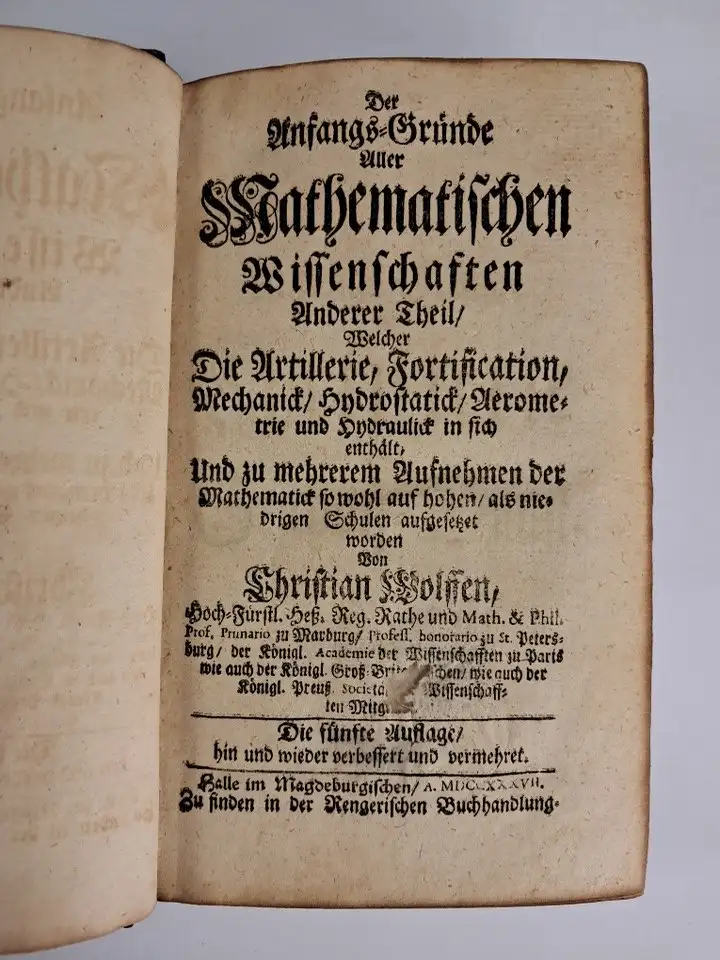 Der
Anfangs-Gründe
Aller
Mathematischen
Wissenschaften
Anderer Theil/
Welcher
Die Artillerie, Fortification,
Mechanick/ Hydrostatick/ Aerome-
trie und Hydraulick in sich
enthält,
Und zu mehrerem Aufnehmen der
Mathematick so wohl auf hohen/ als nie-
drigen Schulen aufgesetzet
worden
Von
Christian Wolffen,
Hoch-Fürstl. Heß. Reg. Rathe und Math. & Phil.
Prof. Primario zu Marburg/ Profess. honorario zu St. Peters-
burg/ der Königl. Academie der Wissenschafften zu Paris
wie auch der Königl. Groß- wie auch der
Königl. Preuß. Wissenschaff-
ten
Die fünfte Auflage/
hin und wieder verbessert und vermehret.
Halle im Magdeburgischen/ A. MDCCXXXVII.
Zu finden in der Rengerischen Buchhandlung.